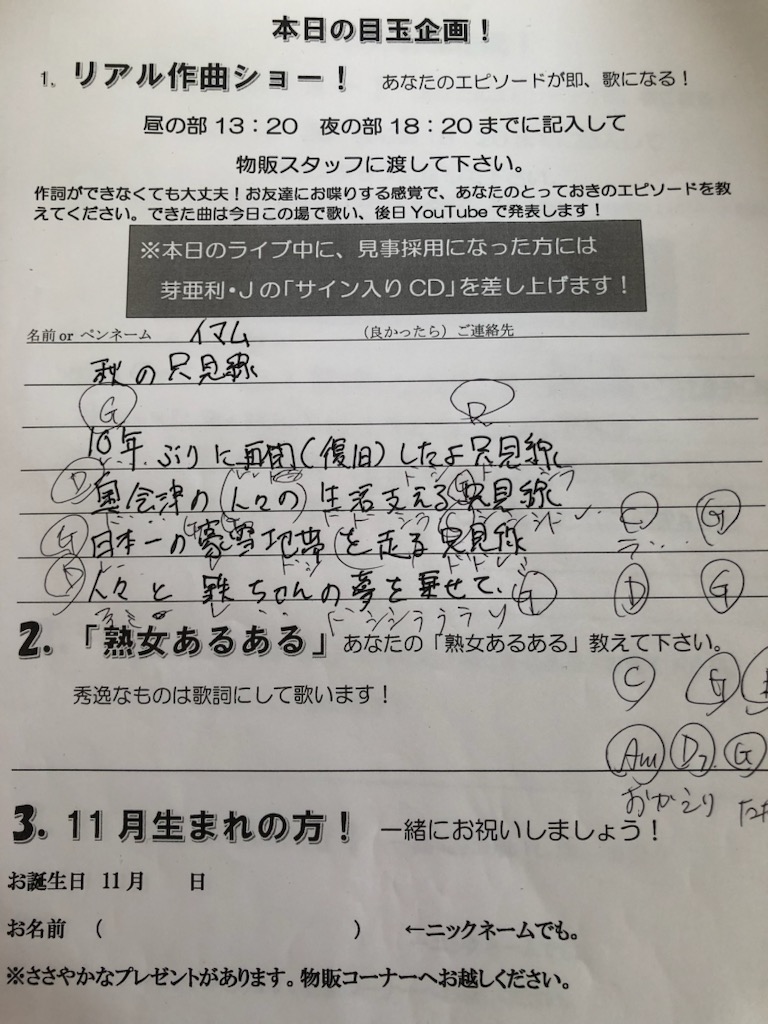 本日の目玉企画！
1. リアル作曲ショー！ あなたのエピソードが即、歌になる！
昼の部 13：20 夜の部 18：20 までに記入して
物販スタッフに渡して下さい。
作詞ができなくても大丈夫！お友達にお喋りする感覚で、あなたのとっておきのエピソードを教
えてください。できた曲は今日この場で歌い、後日 YouTube で発表します！
※本日のライブ中に、見事採用になった方には
芽亜利・J の「サイン入り CD」を差し上げます！
名前 or ペンネーム イマム （良かったら）ご連絡先
秋の只見線
G
10年ぶりに再開(復旧)したよ只見線
D 奥会津の(人々の)生活支える只見線
C G
G 日本一の豪雪地帯を走る只見線
D 人々と鉄ちゃんの夢を乗せて、 G D G
ドシシラララソ
2. 「熟女あるある」 あなたの「熟女あるある」教えて下さい。
秀逸なものは歌詞にして歌います！
C G
Am D7 G
おかえり
3. 11 月生まれの方！ 一緒にお祝いしましょう！
お誕生日 11 月 日
お名前 （ ） ←ニックネームでも。
※ささやかなプレゼントがあります。物販コーナーへお越しください。